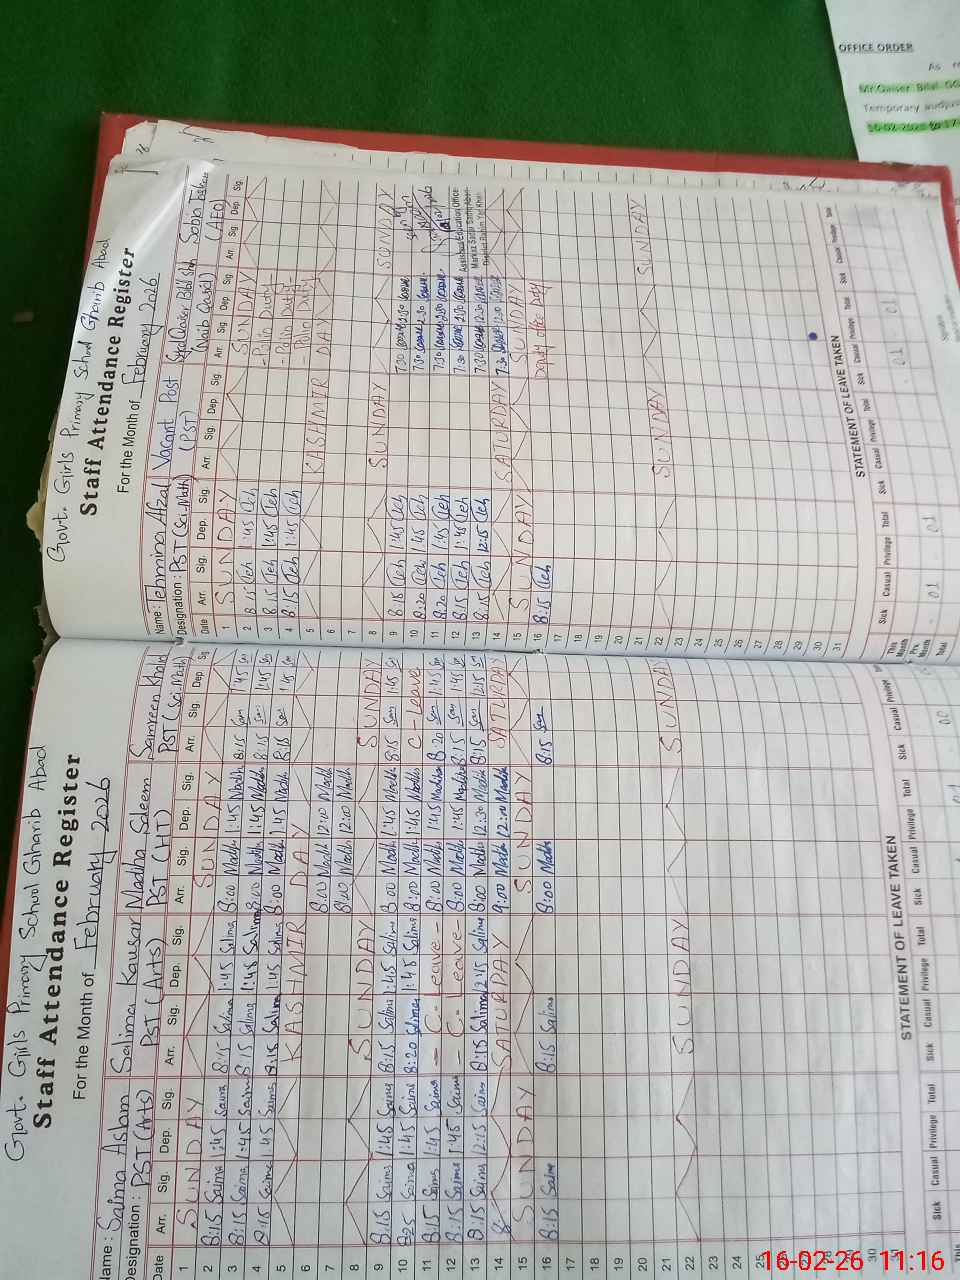 OFFICE ORDER
As re
Mr Qaiser Bilal GG
Temporary audjus
16-02-2026 to 17-
Govt. Girls Primary School Gharib Abad
Staff Attendance Register
For the Month of February 2026
Name: Saima Aslam Salima Kausar Madiha Saleem Samreen Khalid
Designation: PST (Arts) PST (Arts) PST (HT) PST (Sci. Math)
Date Arr. Sig. Dep. Sig. Arr. Sig. Dep. Sig. Arr. Sig. Dep. Sig. Arr. Sig. Dep Sig
1 SUNDAY SUNDAY
2 8:15 Saima 1:45 Saima 8:15 Salima 1:45 Salima 8:00 Madiha 1:45 Madiha 8:15 Sam 1:45 Sam
3 8:15 Saima 1:45 Saima 8:15 Salima 1:45 Salima 8:00 Madiha 1:45 Madiha 8:15 Sam 1:45 Sam
4 8:15 Saima 1:45 Saima 8:15 Salima 1:45 Salima 8:00 Madiha 1:45 Madiha 8:15 Sam 1:45 Sam
5 KASHMIR DAY
6 8:00 Madiha 12:00 Madiha
7 8:00 Madiha 12:00 Madiha
8 SUNDAY SUNDAY
9 8:15 Saima 1:45 Saima 8:15 Salima 1:45 Salima 8:00 Madiha 1:45 Madiha 8:15 Sam 1:45 Sam
10 8:25 Saima 1:45 Saima 8:20 Salima 1:45 Salima 8:00 Madiha 1:45 Madiha C-Leave
11 8:15 Saima 1:45 Saima - C-Leave - 8:00 Madiha 1:45 Madiha 8:20 Sam 1:45 Sam
12 8:15 Saima 1:45 Saima - C-Leave - 8:00 Madiha 1:45 Madiha 8:15 Sam 1:45 Sam
13 8:15 Saima 12:15 Saima 8:15 Salima 12:15 Salima 8:00 Madiha 12:30 Madiha 8:15 Sam 12:15 Sam
14 8: SATURDAY 9:00 Madiha 12:00 Madiha SATURDAY
15 SUNDAY SUNDAY
16 8:15 Saima 8:15 Salima 8:00 Madiha 8:15 Sam
17
18
19
20
21
22 SUNDAY SUNDAY
23
24
25
26
27
28
29
30
31
STATEMENT OF LEAVE TAKEN
Sick Casual Privilege Total Sick Casual Privilege Total Sick Casual Privilege Total Sick Casual Privilege
This
Govt. Girls Primary School Gharib Abad
Staff Attendance Register
For the Month of February 2026
Name: Tehmina Afzal Vacant Post Syed Qaiser Bilal Shah
Designation: PST (Sci. Math) (PST) (Naib Qasid) (AEO)
Date Arr. Sig. Dep. Sig. Arr. Sig. Dep Sig. Arr Sig Dep. Sig Arr Sig Dep. Sig.
1 SUNDAY SUNDAY
2 8:15 Teh 1:45 Teh - Polio Duty -
3 8:15 Teh 1:45 Teh - Polio Duty -
4 8:15 Teh 1:45 Teh - Polio Duty -
5 KASHMIR DAY
6
7
8 SUNDAY SUNDAY
9 8:15 Teh 1:45 Teh 7:30 2:30
10 8:20 Teh 1:45 Teh 7:30 2:30
11 8:20 Teh 1:45 Teh 7:30 2:30
12 8:15 Teh 1:45 Teh 7:30 2:30
13 8:15 Teh 12:15 Teh 7:30 12:30
14 SATURDAY 7:30 12:00
15 SUNDAY SUNDAY
16 8:15 Teh Duty
17
18
19
20
21
22 SUNDAY SUNDAY
23
24
25
26
27
28
29
30
31
Assistant Education Officer
Markaz Sadiq Abad
District Rahim Yar Khan
STATEMENT OF LEAVE TAKEN
Sick Casual Privilege Total Sick Casual Privilege Total Sick Casual Privilege Total Sick Casual Privilege Total
This Month
Prv. Month 01 01 01 01
Total
16-02-26 11:16